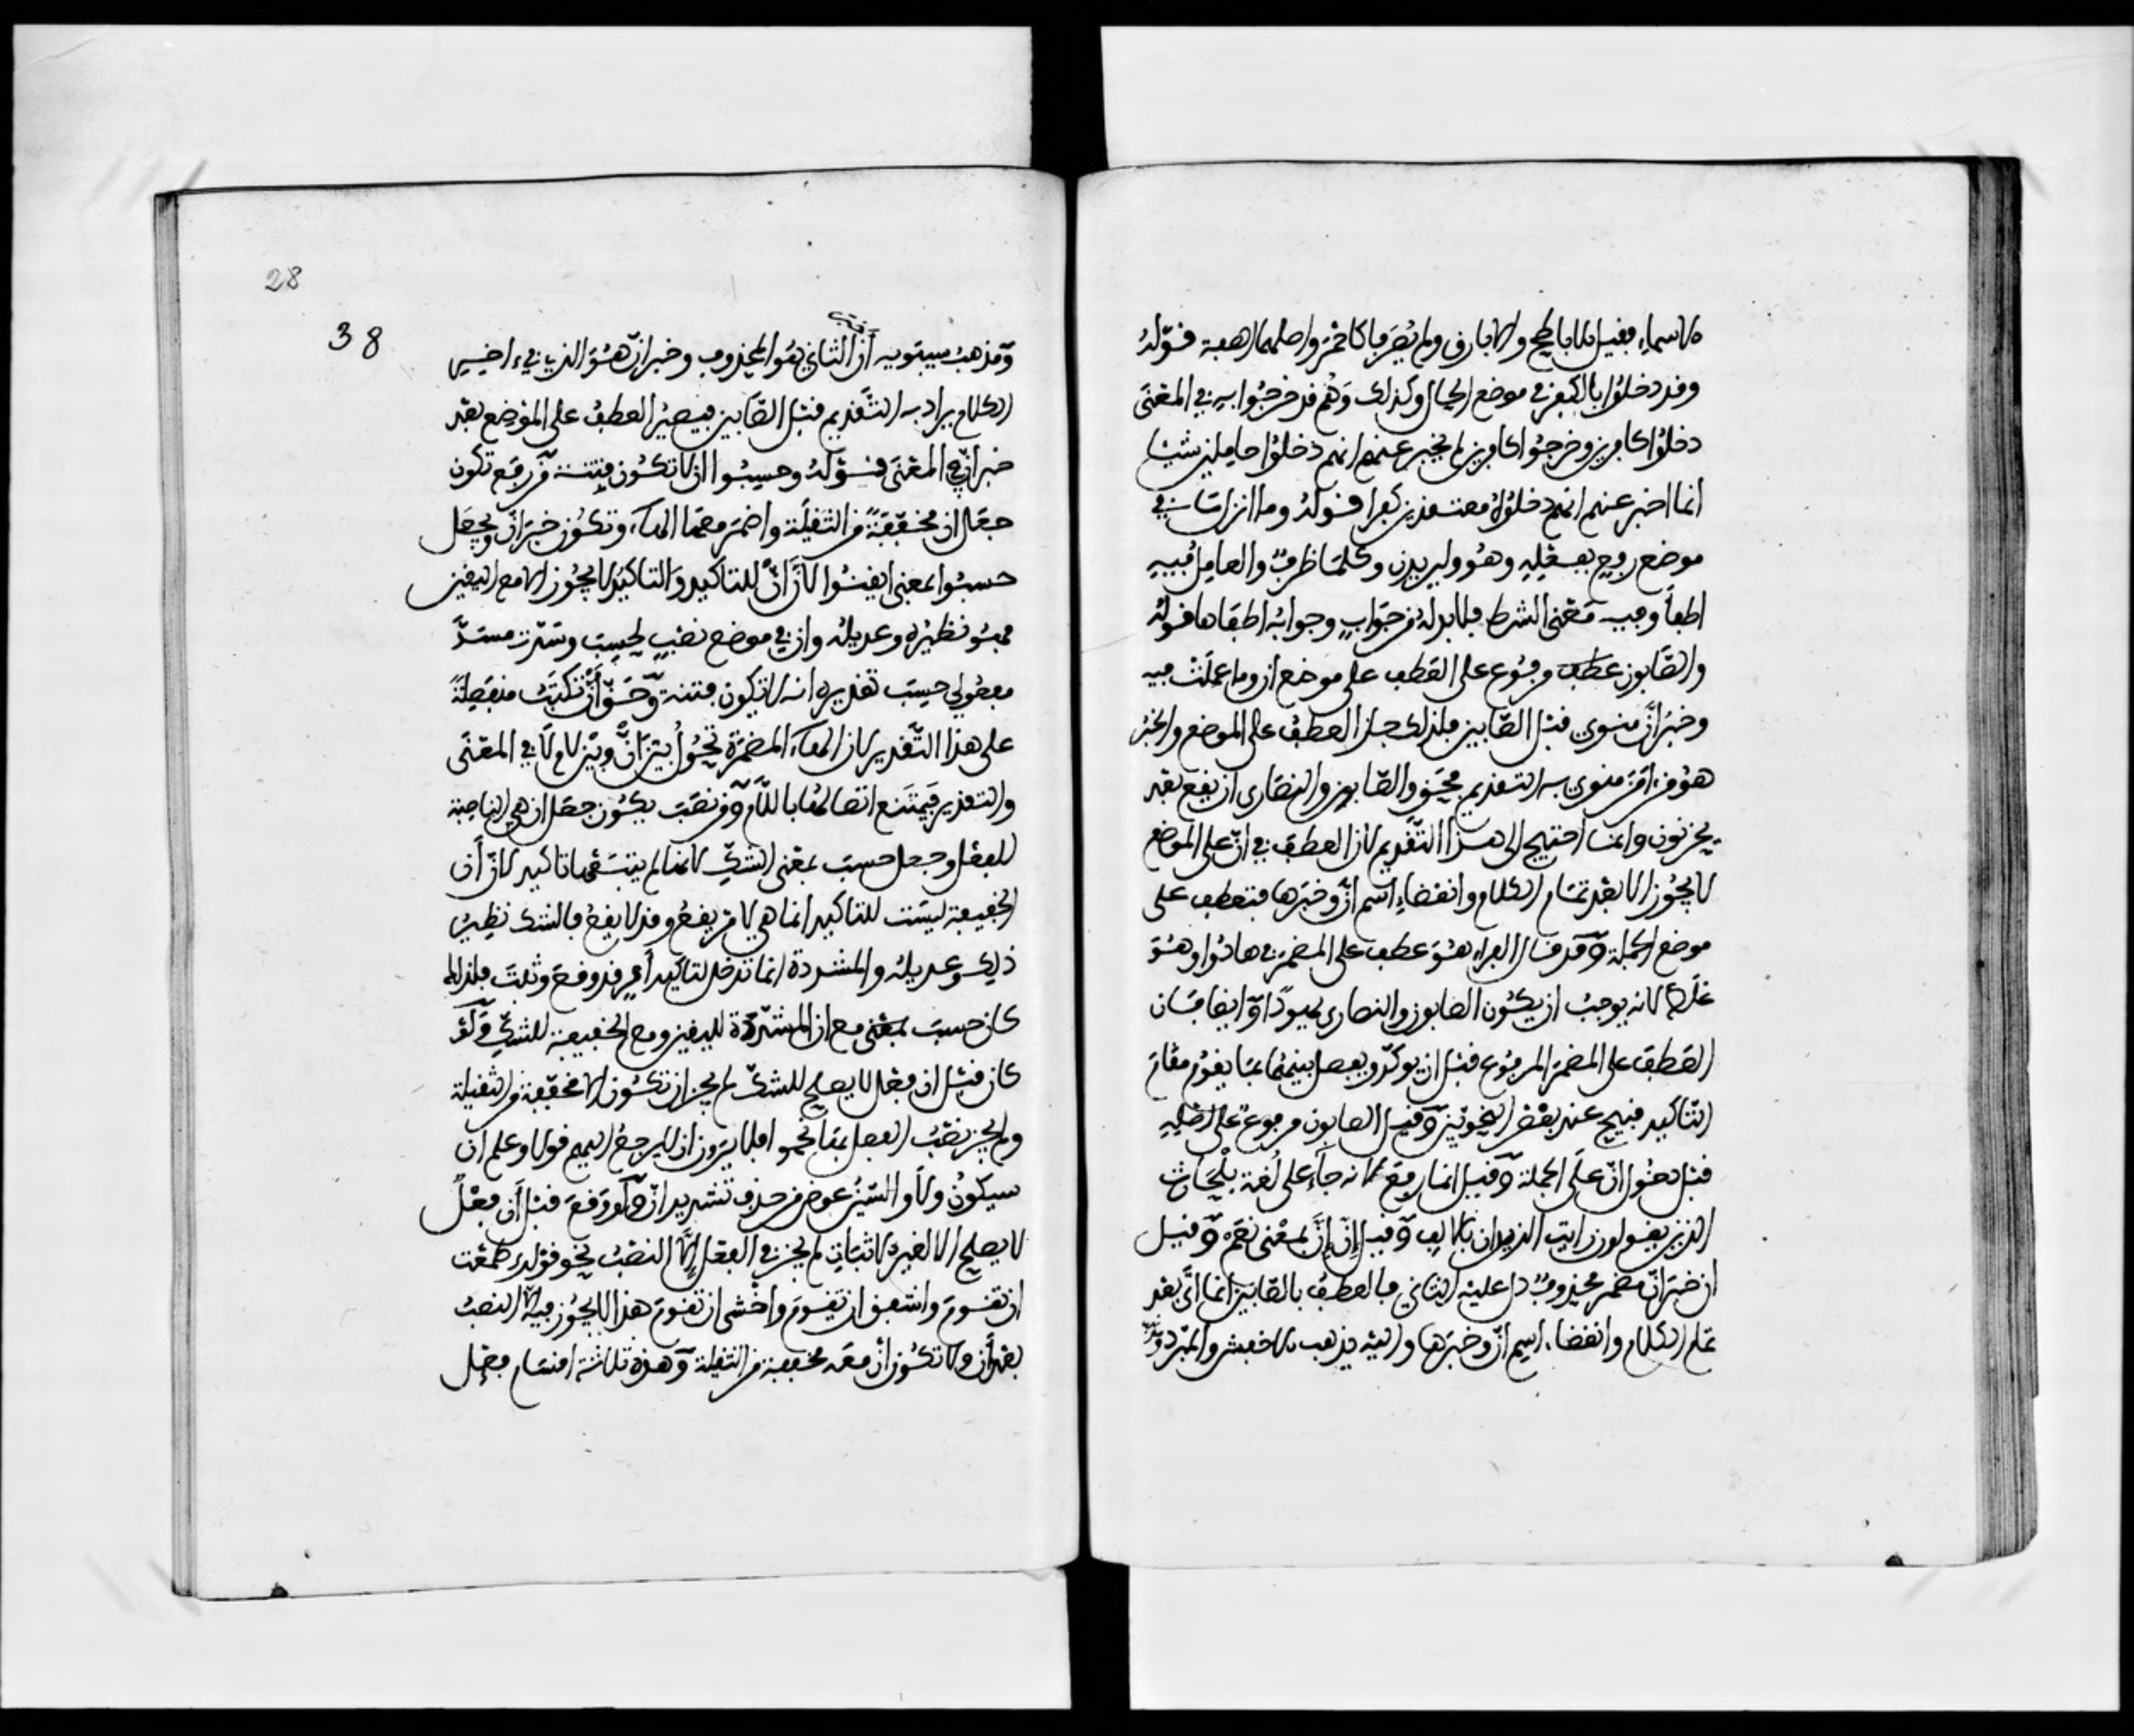 الاسماء فقيل الاباطح والابارق ولم يصرفا كاحمر واصلهما الصفة قوله
وقد دخلوا بالكفر في موضع الحال وكذلك وهم قد خرجوا به في المعنى
دخلوا كافرين وخرجوا كافرين لم يخبر عنهم انهم دخلوا حاملين شيئا
انما اخبر عنهم انهم دخلوا معتقدين كفرا قوله وما انزلت في
موضع رفع بفعله وهو وليزيدن وكلما ظرف والعامل فيه
اطفأ وفيه معنى الشرط فلا بد له من جواب وجوابه اطفاها قوله
والصابون عطف مرفوع على العطف على موضع ان وما عملت فيه
وخبر ان منوي قبل الصابين فلذلك جاز العطف على الموضع والخبر
هو من امن منوي به التقديم فحق والصابون والنصارى ان يقع بعد
يحزنون وانما احتيج الى هذا التقديم لان العطف في ان على الموضع
لا يجوز الا بعد تمام الكلام وانقضاء اسم ان وخبرها فتعطف على
موضع الجملة وقد قال الفراء هو عطف على المضمر في هادوا وهو
غلط لانه يوجب ان يكون الصابون والنصارى يهودا وايضا فان
العطف على المضمر المرفوع قبل ان يوكد ويفصل بينهما بما يقوم مقام
التاكيد قبيح عند بعض النحويين وقيل الصابون مرفوع على اصله
قبل دخول ان على الجملة وقيل انما رفع لانه جاء على لغة بلحارث
الذين يقولون رايت الزيدان بالالف وقيل ان إنّ بمعنى نعم وقيل
ان خبر ان مضمر محذوف دل عليه الثاني فالعطف بالصابين انما اتى بعد
تمام الكلام وانقضاء اسم ان وخبرها واليه يذهب الاخفش والمبرد
38 28
ومذهب سيبويه أن الثاني هو المحذوف وخبر ان هو الذي في اخر
الكلام يراد به التقديم قبل الصابين فيصير العطف على الموضع بعد
خبر ان في المعنى قوله وحسبوا ان لا تكون فتنة من رفع تكون
جعل ان مخففة من الثقيلة واضمر معها الهاء وتكون خبر ان ويجعل
حسبوا بمعنى ايقنوا لأن ان للتاكيد والتاكيد لا يجوز الا مع اليقين
فهو نظيره وعديله وان في موضع نصب لحسب وسدت مسد
مفعولي حسب تقديره انه لا تكون فتنة وحق أن تكتب منفصلة
على هذا التقدير لان الهاء المضمرة تحول بين ان وبين لام لا في المعنى
والتقدير فيمتنع اتصالها باللام ومن نصب يكون جعل ان هي الناصبة
للفعل وجعل حسب بمعنى الشك لانها لم يتبعها تاكيد لان أن
الخفيفة ليست للتاكيد انما هي لامر يقع وقد لا يقع فالشك نظير
ذلك وعديله والمشددة انما تدخل لتاكيد أمر قد وقع وثبت فلذلك
كان حسب بمعنى مع ان المشددة لليقين ومع الخفيفة للشك ولو
كان قبل ان فعل لا يصلح للشك لم يجز ان تكون الا مخففة من الثقيلة
ولم يجز نصب الفعل بها نحو افلا يرون ان لا يرجع اليهم قولا وعلم ان
سيكون ولا والسين عوض من حذف تشديد ان ولو وقع قبل أن فعل
لا يصلح الا لغير الاثبات لم يجز في الفعل إلا النصب نحو قولك طمعت
ان تقوم واشفق ان تقوم واخشى ان تقوم هذا لا يجوز فيه الا النصب
بعد أن ولا تكون ان معه مخففة من الثقيلة وهذه ثلاثة اقسام فعل